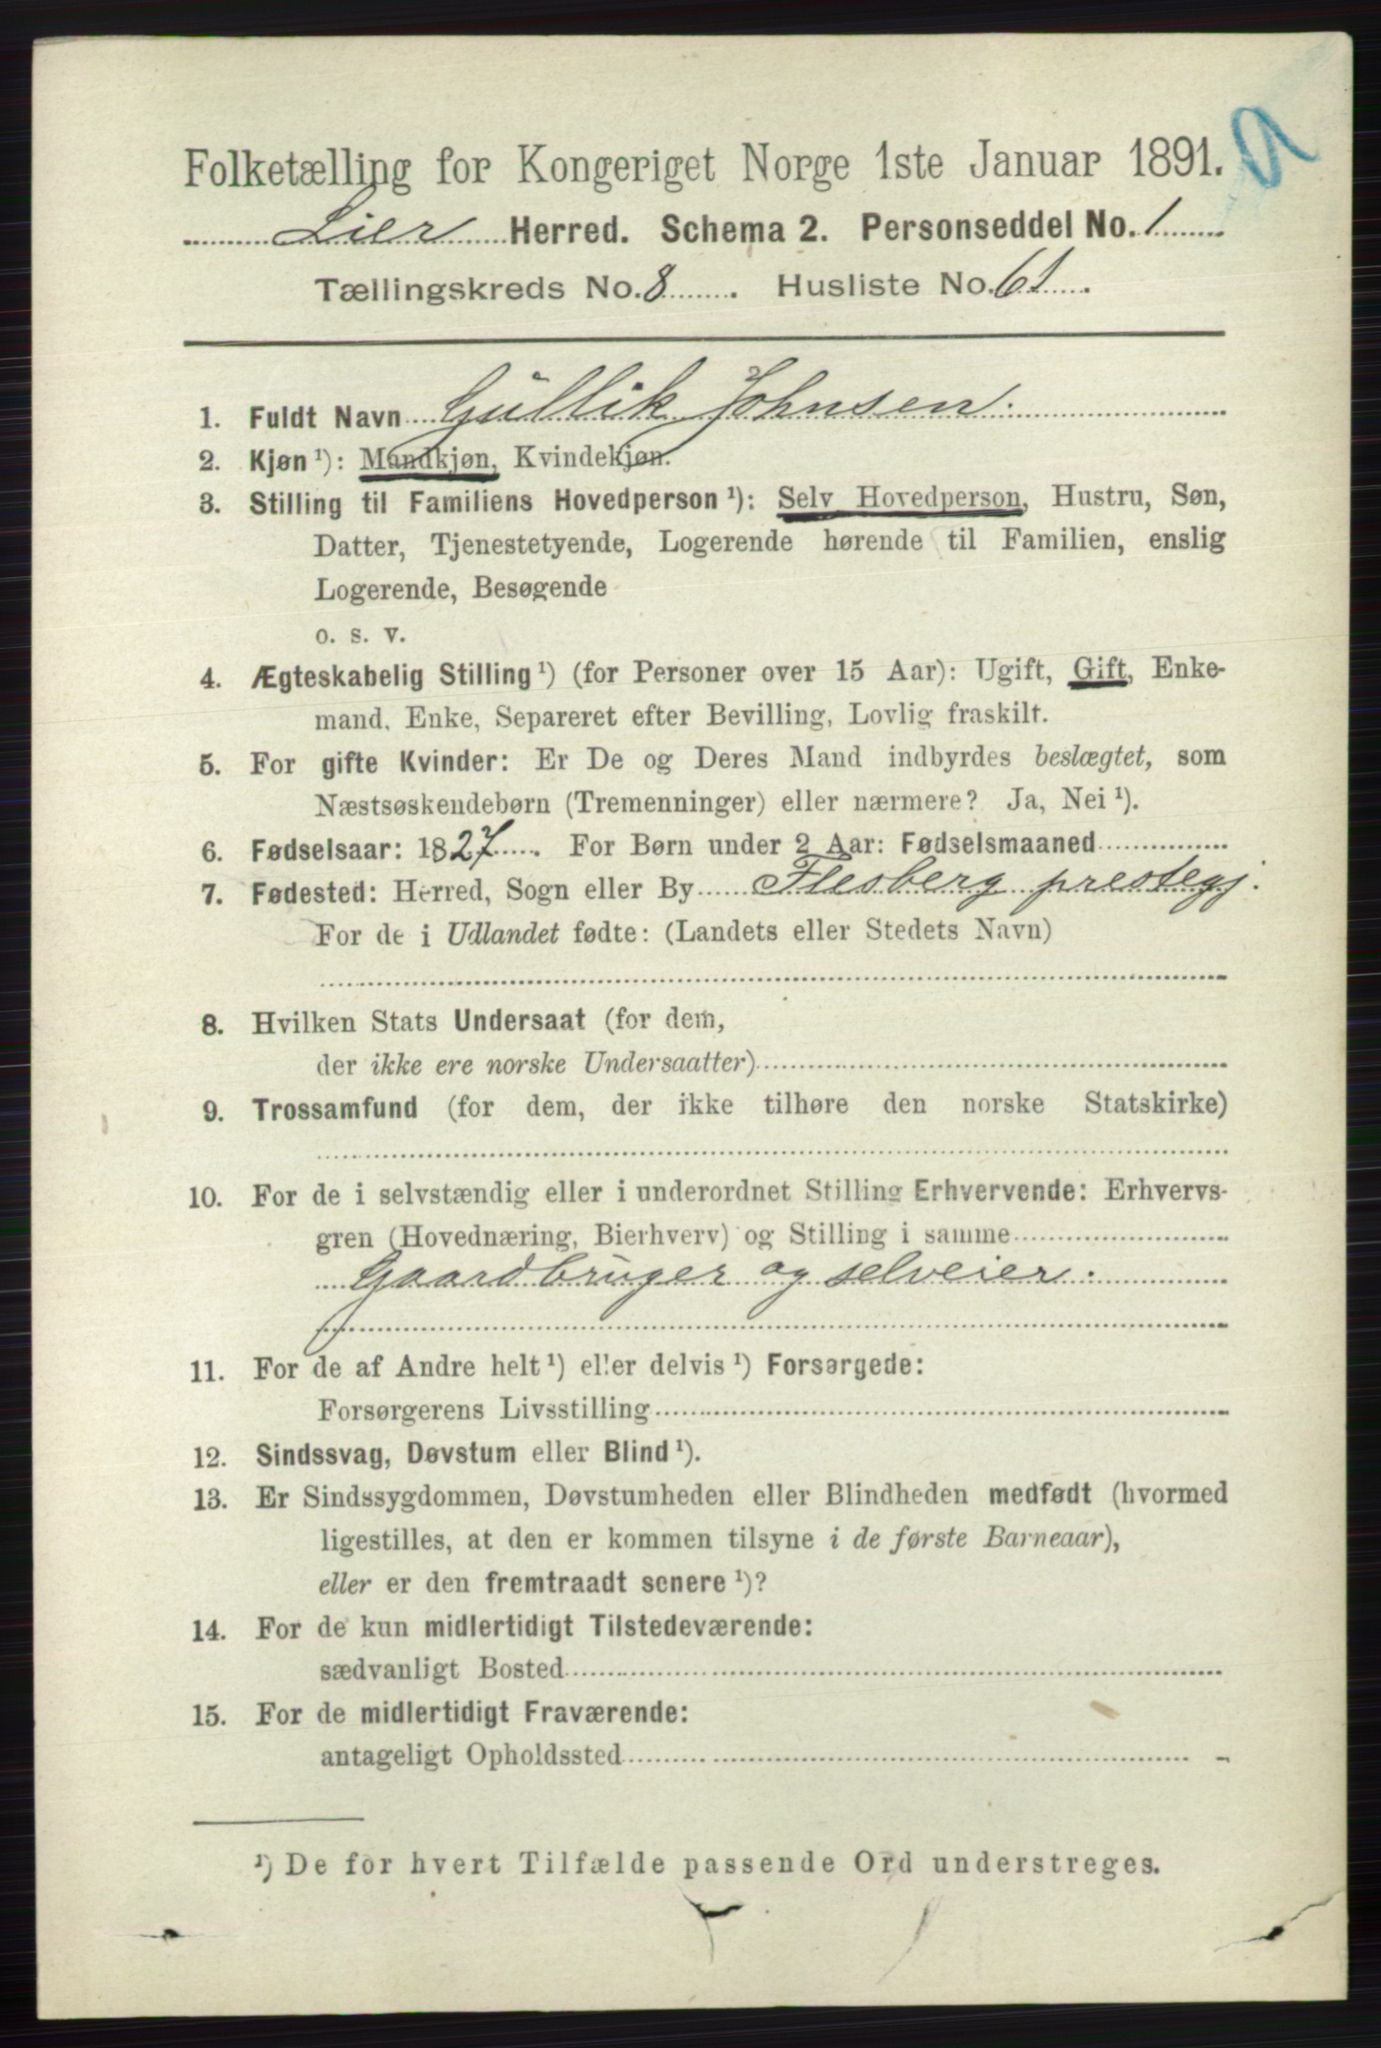 Folketælling for Kongeriget Norge 1ste Januar 1891.
Lier Herred. Schema 2. Personseddel No. 1
Tællingskreds No. 8. Husliste No. 61.
1. Fuldt Navn Gullik Johnsen.
2. Kjøn ¹): Mandkjøn, Kvindekjøn.
3. Stilling til Familiens Hovedperson ¹): Selv Hovedperson, Hustru, Søn,
Datter, Tjenestetyende, Logerende hørende til Familien, enslig
Logerende, Besøgende
o. s. v.
4. Ægteskabelig Stilling ¹) (for Personer over 15 Aar): Ugift, Gift, Enke-
mand, Enke, Separeret efter Bevilling, Lovlig fraskilt.
5. For gifte Kvinder: Er De og Deres Mand indbyrdes beslægtet, som
Næstsøskendebørn (Tremenninger) eller nærmere? Ja, Nei ¹).
6. Fødselsaar: 1827. For Børn under 2 Aar: Fødselsmaaned
7. Fødested: Herred, Sogn eller By Flesberg prestegj.
For de i Udlandet fødte: (Landets eller Stedets Navn)
8. Hvilken Stats Undersaat (for dem,
der ikke ere norske Undersaatter)
9. Trossamfund (for dem, der ikke tilhøre den norske Statskirke)
10. For de i selvstændig eller i underordnet Stilling Erhvervende: Erhvervs-
gren (Hovednæring, Bierhverv) og Stilling i samme
Gaardbruger og selveier.
11. For de af Andre helt ¹) eller delvis ¹) Forsørgede:
Forsørgerens Livsstilling
12. Sindssvag, Døvstum eller Blind ¹).
13. Er Sindssygdommen, Døvstumheden eller Blindheden medfødt (hvormed
ligestilles, at den er kommen tilsyne i de første Barneaar),
eller er den fremtraadt senere ¹)?
14. For de kun midlertidigt Tilstedeværende:
sædvanligt Bosted
15. For de midlertidigt Fraværende:
antageligt Opholdssted
¹) De for hvert Tilfælde passende Ord understreges.